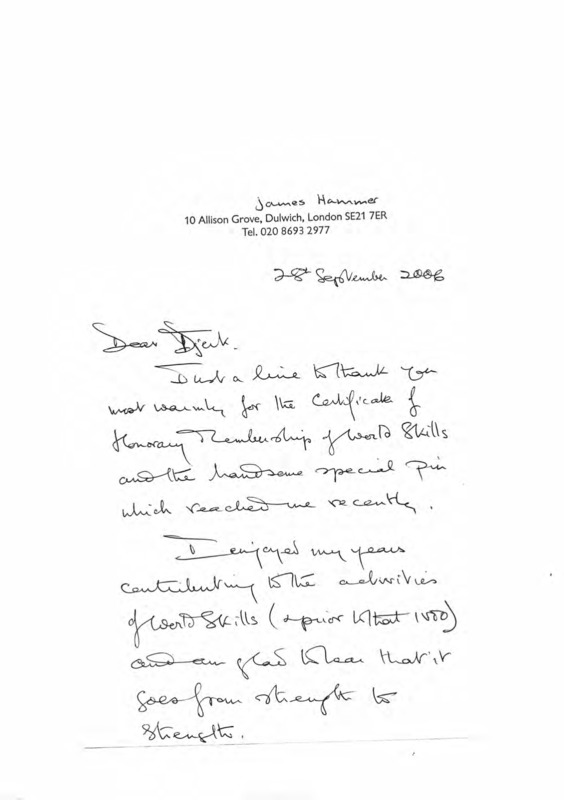 James Hammer
10 Allison Grove, Dulwich, London SE21 7ER
Tel. 020 8693 2977
28th September 2006
Dear Tjerk.
Just a line to thank you
most warmly for the Certificate of
Honorary Membership of World Skills
and the handsome special pin
which reached me recently.
I enjoyed my years
contributing to the activities
of World Skills (& prior to that IVTO)
and am glad to hear that it
goes from strength to
strength.